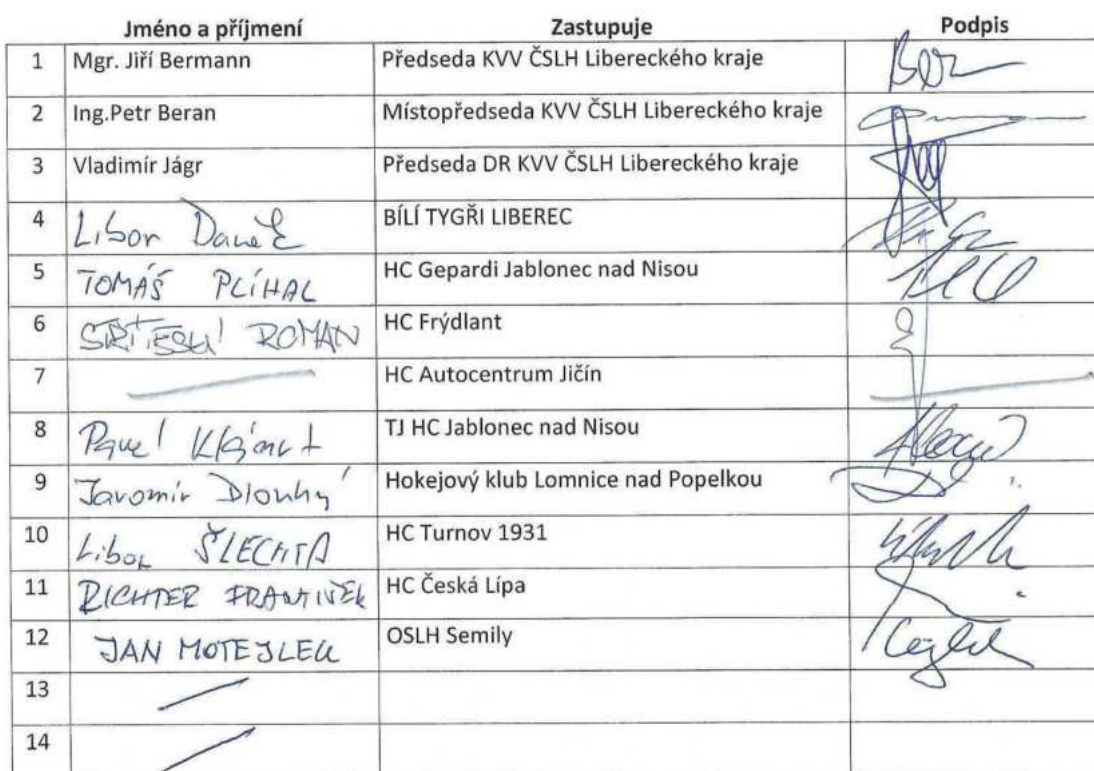 Jméno a příjmení Zastupuje Podpis
1 Mgr. Jiří Bermann Předseda KVV ČSLH Libereckého kraje
2 Ing.Petr Beran Místopředseda KVV ČSLH Libereckého kraje
3 Vladimír Jágr Předseda DR KVV ČSLH Libereckého kraje
4 Libor Daněk BÍLÍ TYGŘI LIBEREC
5 TOMÁŠ PLÍHAL HC Gepardi Jablonec nad Nisou
6 ROMAN HC Frýdlant
7 HC Autocentrum Jičín
8 Pavel TJ HC Jablonec nad Nisou
9 Jaromír Dlouhý Hokejový klub Lomnice nad Popelkou
10 Libor ŠLECHTA HC Turnov 1931
11 RICHTER FRANTIŠEK HC Česká Lípa
12 JAN MOTEJLEK OSLH Semily
13
14